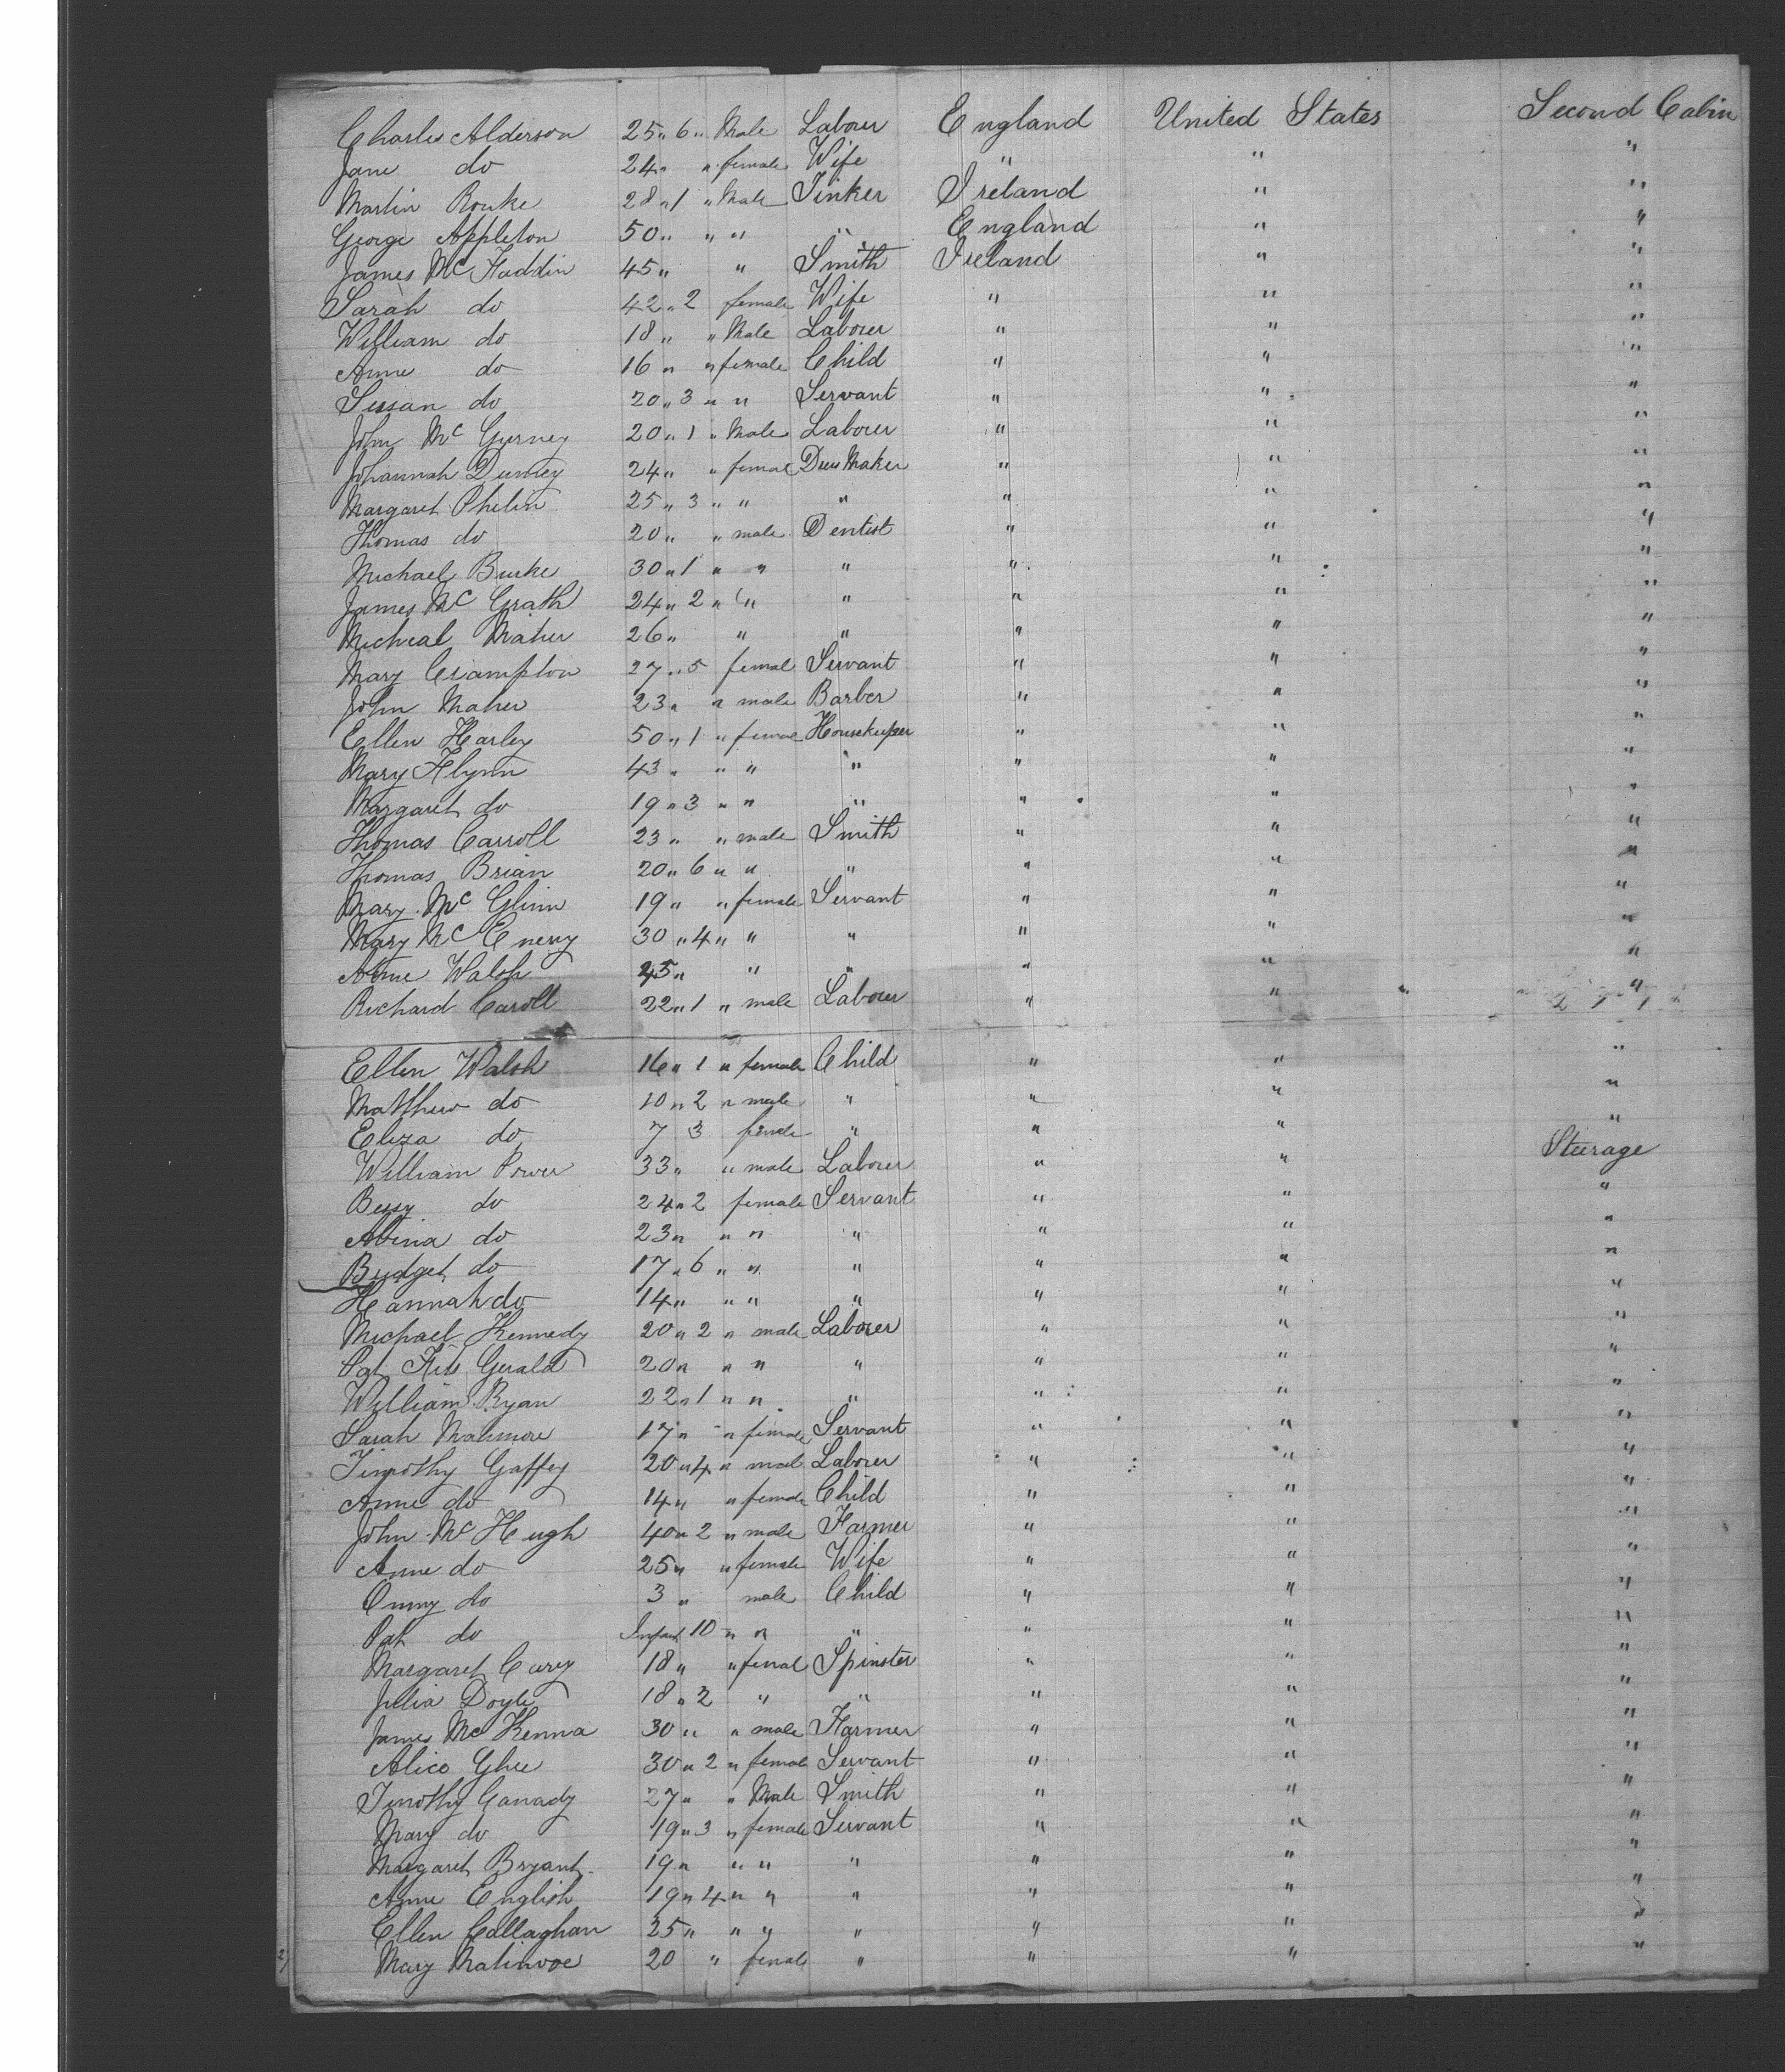 Charles Alderson 25 " 6 " Male Laborer England United States Second Cabin
Jane do 24 " " female Wife " " "
Martin Rouke 28 " 1 " Male Tinker Ireland " "
George Appleton 50 " " " " England " "
James Mc Faddin 45 " " Smith Ireland " "
Sarah do 42 " 2 female Wife " " "
William do 18 " " Male Laborer " " "
Anne do 16 " " female Child " " "
Sussan do 20 " 3 " " Servant " " "
John Mc Gurney 20 " 1 " Male Laborer " " "
Johannah 24 " " femal Dress Maker " " "
Margaret Phelin 25 " 3 " " " " " "
Thomas do 20 " " male Dentist " " "
Michael Burke 30 " 1 " " " " " "
James Mc Grath 24 " 2 " " " " " "
Micheal Maher 26 " " " " " "
Mary Crampton 27 " 5 femal Servant " " "
John Maher 23 " " male Barber " " "
Ellen Harley 50 " 1 " femal Housekeeper " " "
Mary Flynn 43 " " " " " " "
Margaret do 19 " 3 " " " " " "
Thomas Carroll 23 " " male Smith " " "
Thomas Brian 20 " 6 " " " " " "
Mary Mc Glinn 19 " " female Servant " " "
Mary Mc Enery 30 " 4 " " " " " "
Anne Walsh 45 " " " " " "
Richard Caroll 22 " 1 " male Laborer " " "
Ellen Walsh 16 " 1 " female Child " " "
Matthew do 10 " 2 " male " " " "
Eliza do 7 3 female " " " "
William Power 33 " " male Laborer " " Steerage
Bessy do 24 " 2 female Servant " " "
Abina do 23 " " " " " " "
Bridget do 17 " 6 " " " " " "
Hannah do 14 " " " " " " "
Michael Kennedy 20 " 2 " male Laborer " " "
Pat Fitz Gerald 20 " " " " " " "
William Ryan 22 " 1 " " " " " "
Sarah 17 " " female Servant " " "
Timothy Gaffey 20 " 4 " male Laborer " " "
Anne do 14 " " female Child " " "
John Mc Hugh 40 " 2 " male Farmer " " "
Anne do 25 " " female Wife " " "
do 3 " male Child " " "
Pat do Infant 10 " " " " " "
Margaret Carey 18 " " femal Spinster " " "
Julia Doyle 18 " 2 " " " " "
James Mc Kenna 30 " " male Farmer " " "
Alice Ghee 30 " 2 " female Servant " " "
Timothy Canady 27 " " Male Smith " " "
Mary do 19 " 3 " female Servant " " "
Margaret Bryant 19 " " " " " " "
Anne English 19 " 4 " " " " " "
Ellen Callaghan 25 " " " " " " "
Mary 20 " female " " " "